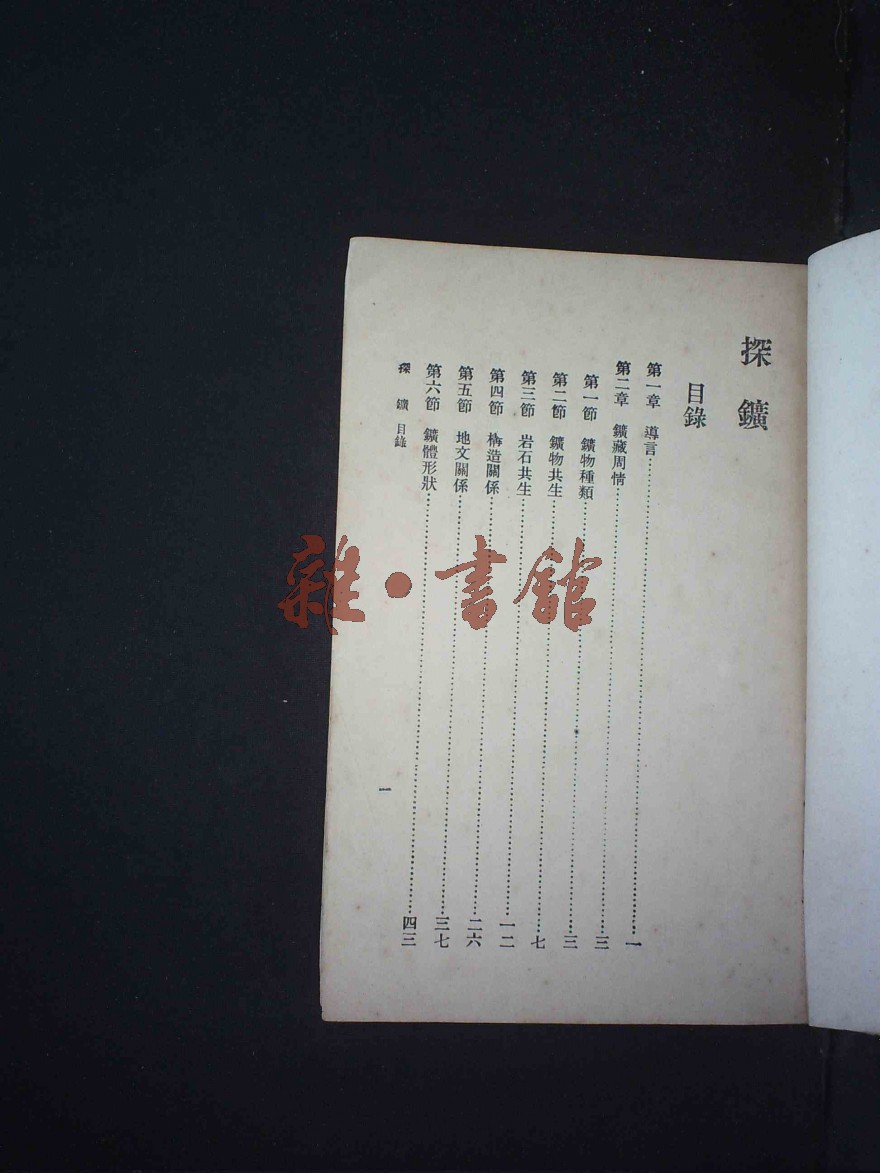 探鑛
目錄
第一章 導言……一
第二章 鑛藏周情……三
第一節 鑛物種類……三
第二節 鑛物共生……七
第三節 岩石共生……一二
第四節 構造關係……二六
第五節 地文關係……三七
第六節 鑛體形狀……四三
探鑛 目錄
一
雜·書館